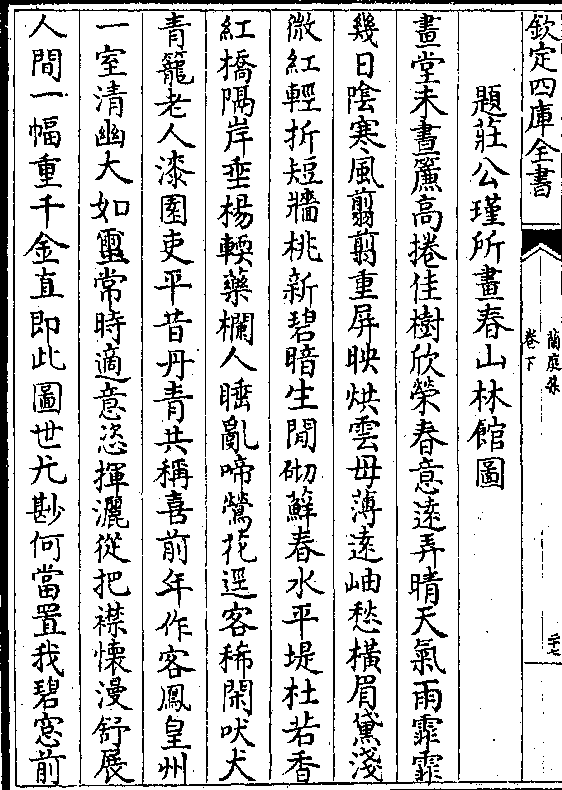 欽定四庫全書
蘭庭集
卷下
二十七
題莊公瑾所畫春山林館圖
畫堂未書簾高捲佳樹欣榮春意遠弄晴天氣雨霏霏
幾日隂寒風翦翦重屏映烘雲母薄遠岫愁横眉黛淺
微紅輕折短牆桃新碧暗生閒砌蘚春水平堤杜若香
紅橋隔岸垂楊輭藥欄人睡亂啼鶯花逕客稀閑吠犬
青籠老人漆園吏平昔丹青共稱喜前年作客鳳皇州
一室清幽大如𤫊常時適意恣揮灑從把襟懷漫舒展
人間一幅重千金直即此圖世尤尠何當置我碧窓前